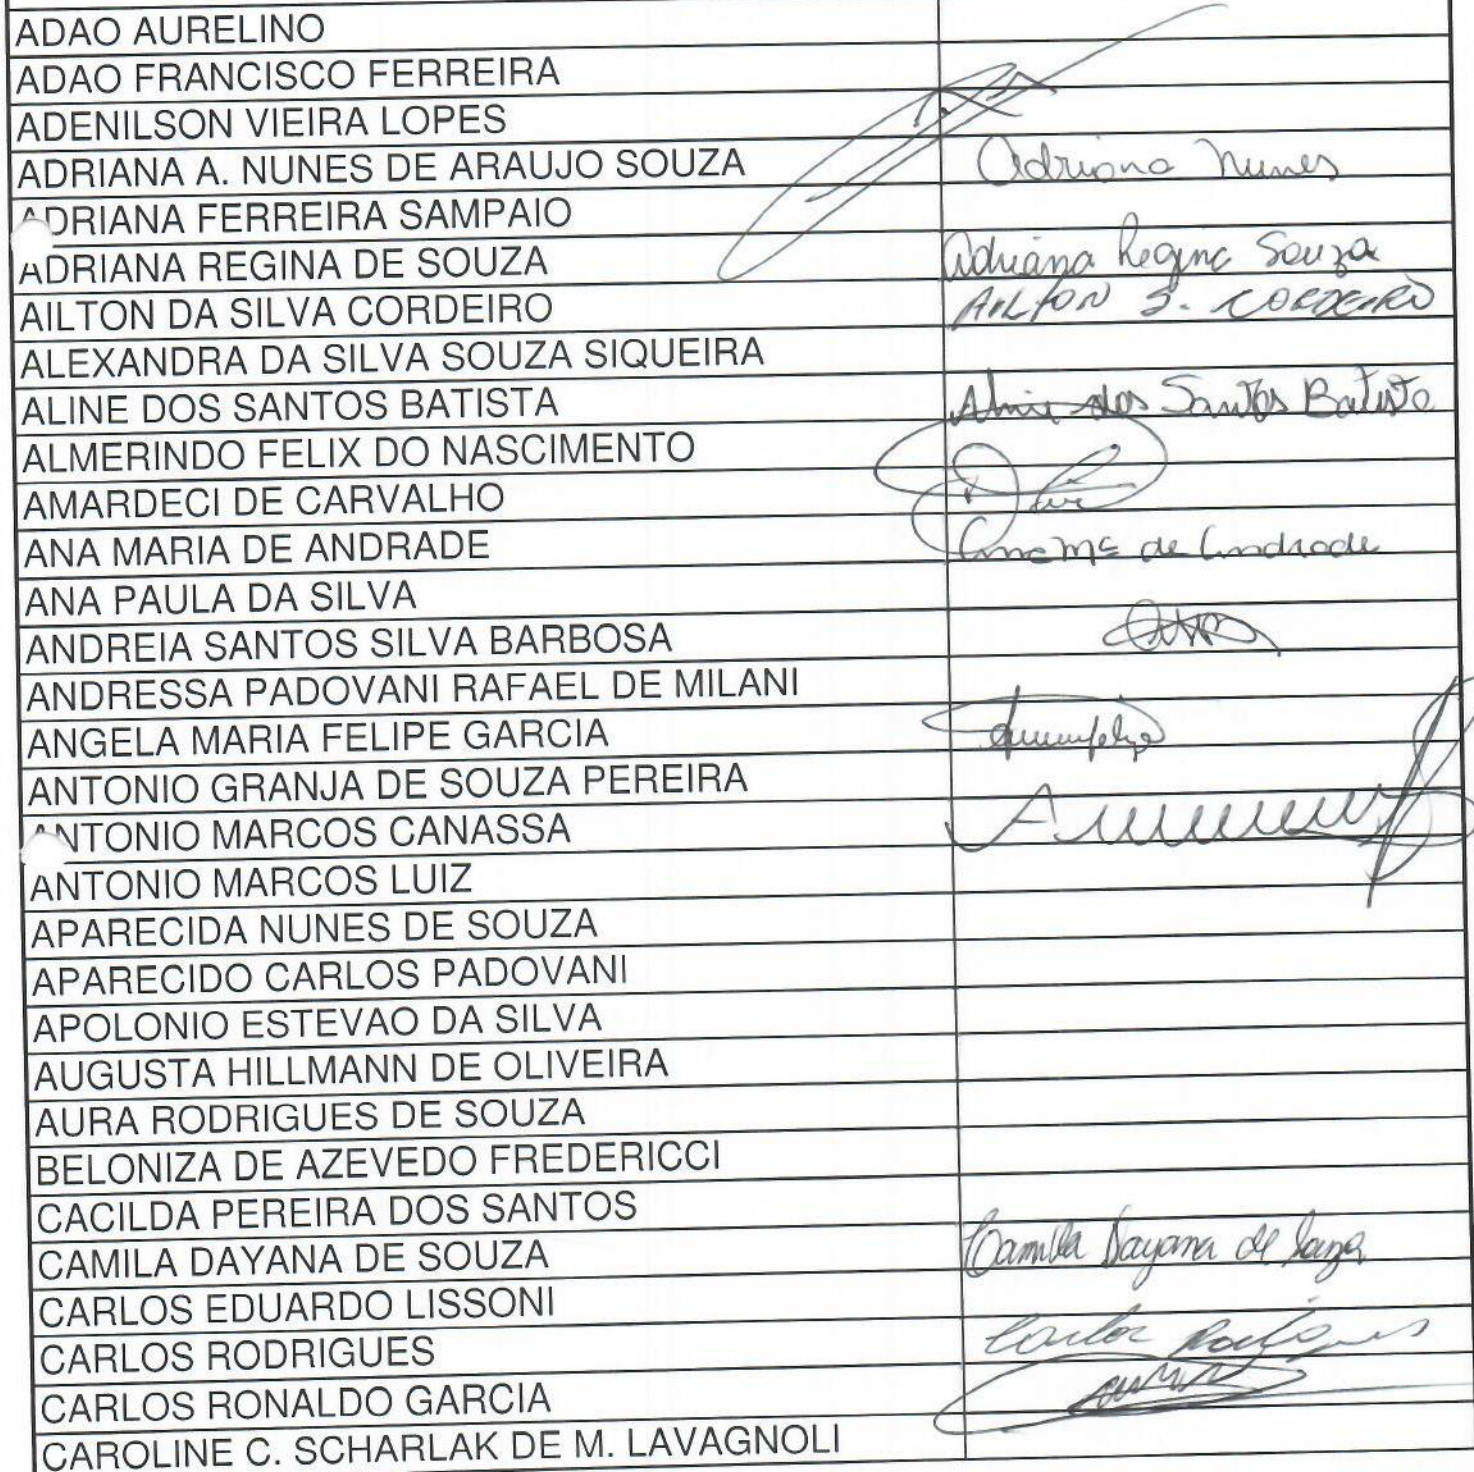 ADAO AURELINO
ADAO FRANCISCO FERREIRA
ADENILSON VIEIRA LOPES
ADRIANA A. NUNES DE ARAUJO SOUZA Adriana Nunes
ADRIANA FERREIRA SAMPAIO
ADRIANA REGINA DE SOUZA Adriana Regina Souza
AILTON DA SILVA CORDEIRO AILTON S. CORDEIRO
ALEXANDRA DA SILVA SOUZA SIQUEIRA
ALINE DOS SANTOS BATISTA Aline dos Santos Batista
ALMERINDO FELIX DO NASCIMENTO
AMARDECI DE CARVALHO
ANA MARIA DE ANDRADE Ana Mª de Andrade
ANA PAULA DA SILVA
ANDREIA SANTOS SILVA BARBOSA
ANDRESSA PADOVANI RAFAEL DE MILANI
ANGELA MARIA FELIPE GARCIA
ANTONIO GRANJA DE SOUZA PEREIRA
ANTONIO MARCOS CANASSA
ANTONIO MARCOS LUIZ
APARECIDA NUNES DE SOUZA
APARECIDO CARLOS PADOVANI
APOLONIO ESTEVAO DA SILVA
AUGUSTA HILLMANN DE OLIVEIRA
AURA RODRIGUES DE SOUZA
BELONIZA DE AZEVEDO FREDERICCI
CACILDA PEREIRA DOS SANTOS
CAMILA DAYANA DE SOUZA Camila Dayana de Souza
CARLOS EDUARDO LISSONI
CARLOS RODRIGUES Carlos Rodrigues
CARLOS RONALDO GARCIA
CAROLINE C. SCHARLAK DE M. LAVAGNOLI